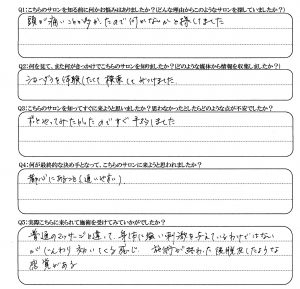 Q1:こちらのサロンを知る前に何かお悩みはありましたか?どんな理由からこのようなサロンを探していましたか?
頭が痛いことが多かったので何かないかと探しました
Q2:何を見て、また何がきっかけでこちらのサロンを知りましたか?(どのような媒体から情報を収集しましたか?)
を体験したくて検索してみつけました
Q3:こちらのサロンを知ってすぐに来ようと思いましたか?思わなかったとしたらどのような点が不安でしたか?
ずっとやってみたかったのですぐ予約しました
Q4:何が最終的な決め手となって、こちらのサロンに来ようと思われましたか?
都心にあること(通いやすい)
Q5:実際こちらに来られて施術を受けてみていかがでしたか?
普通のマッサージと違って、身体に強い刺激を与えているわけではない
がじんわり効いてくる感じ 施術が終わった後脱皮したような
感覚がある